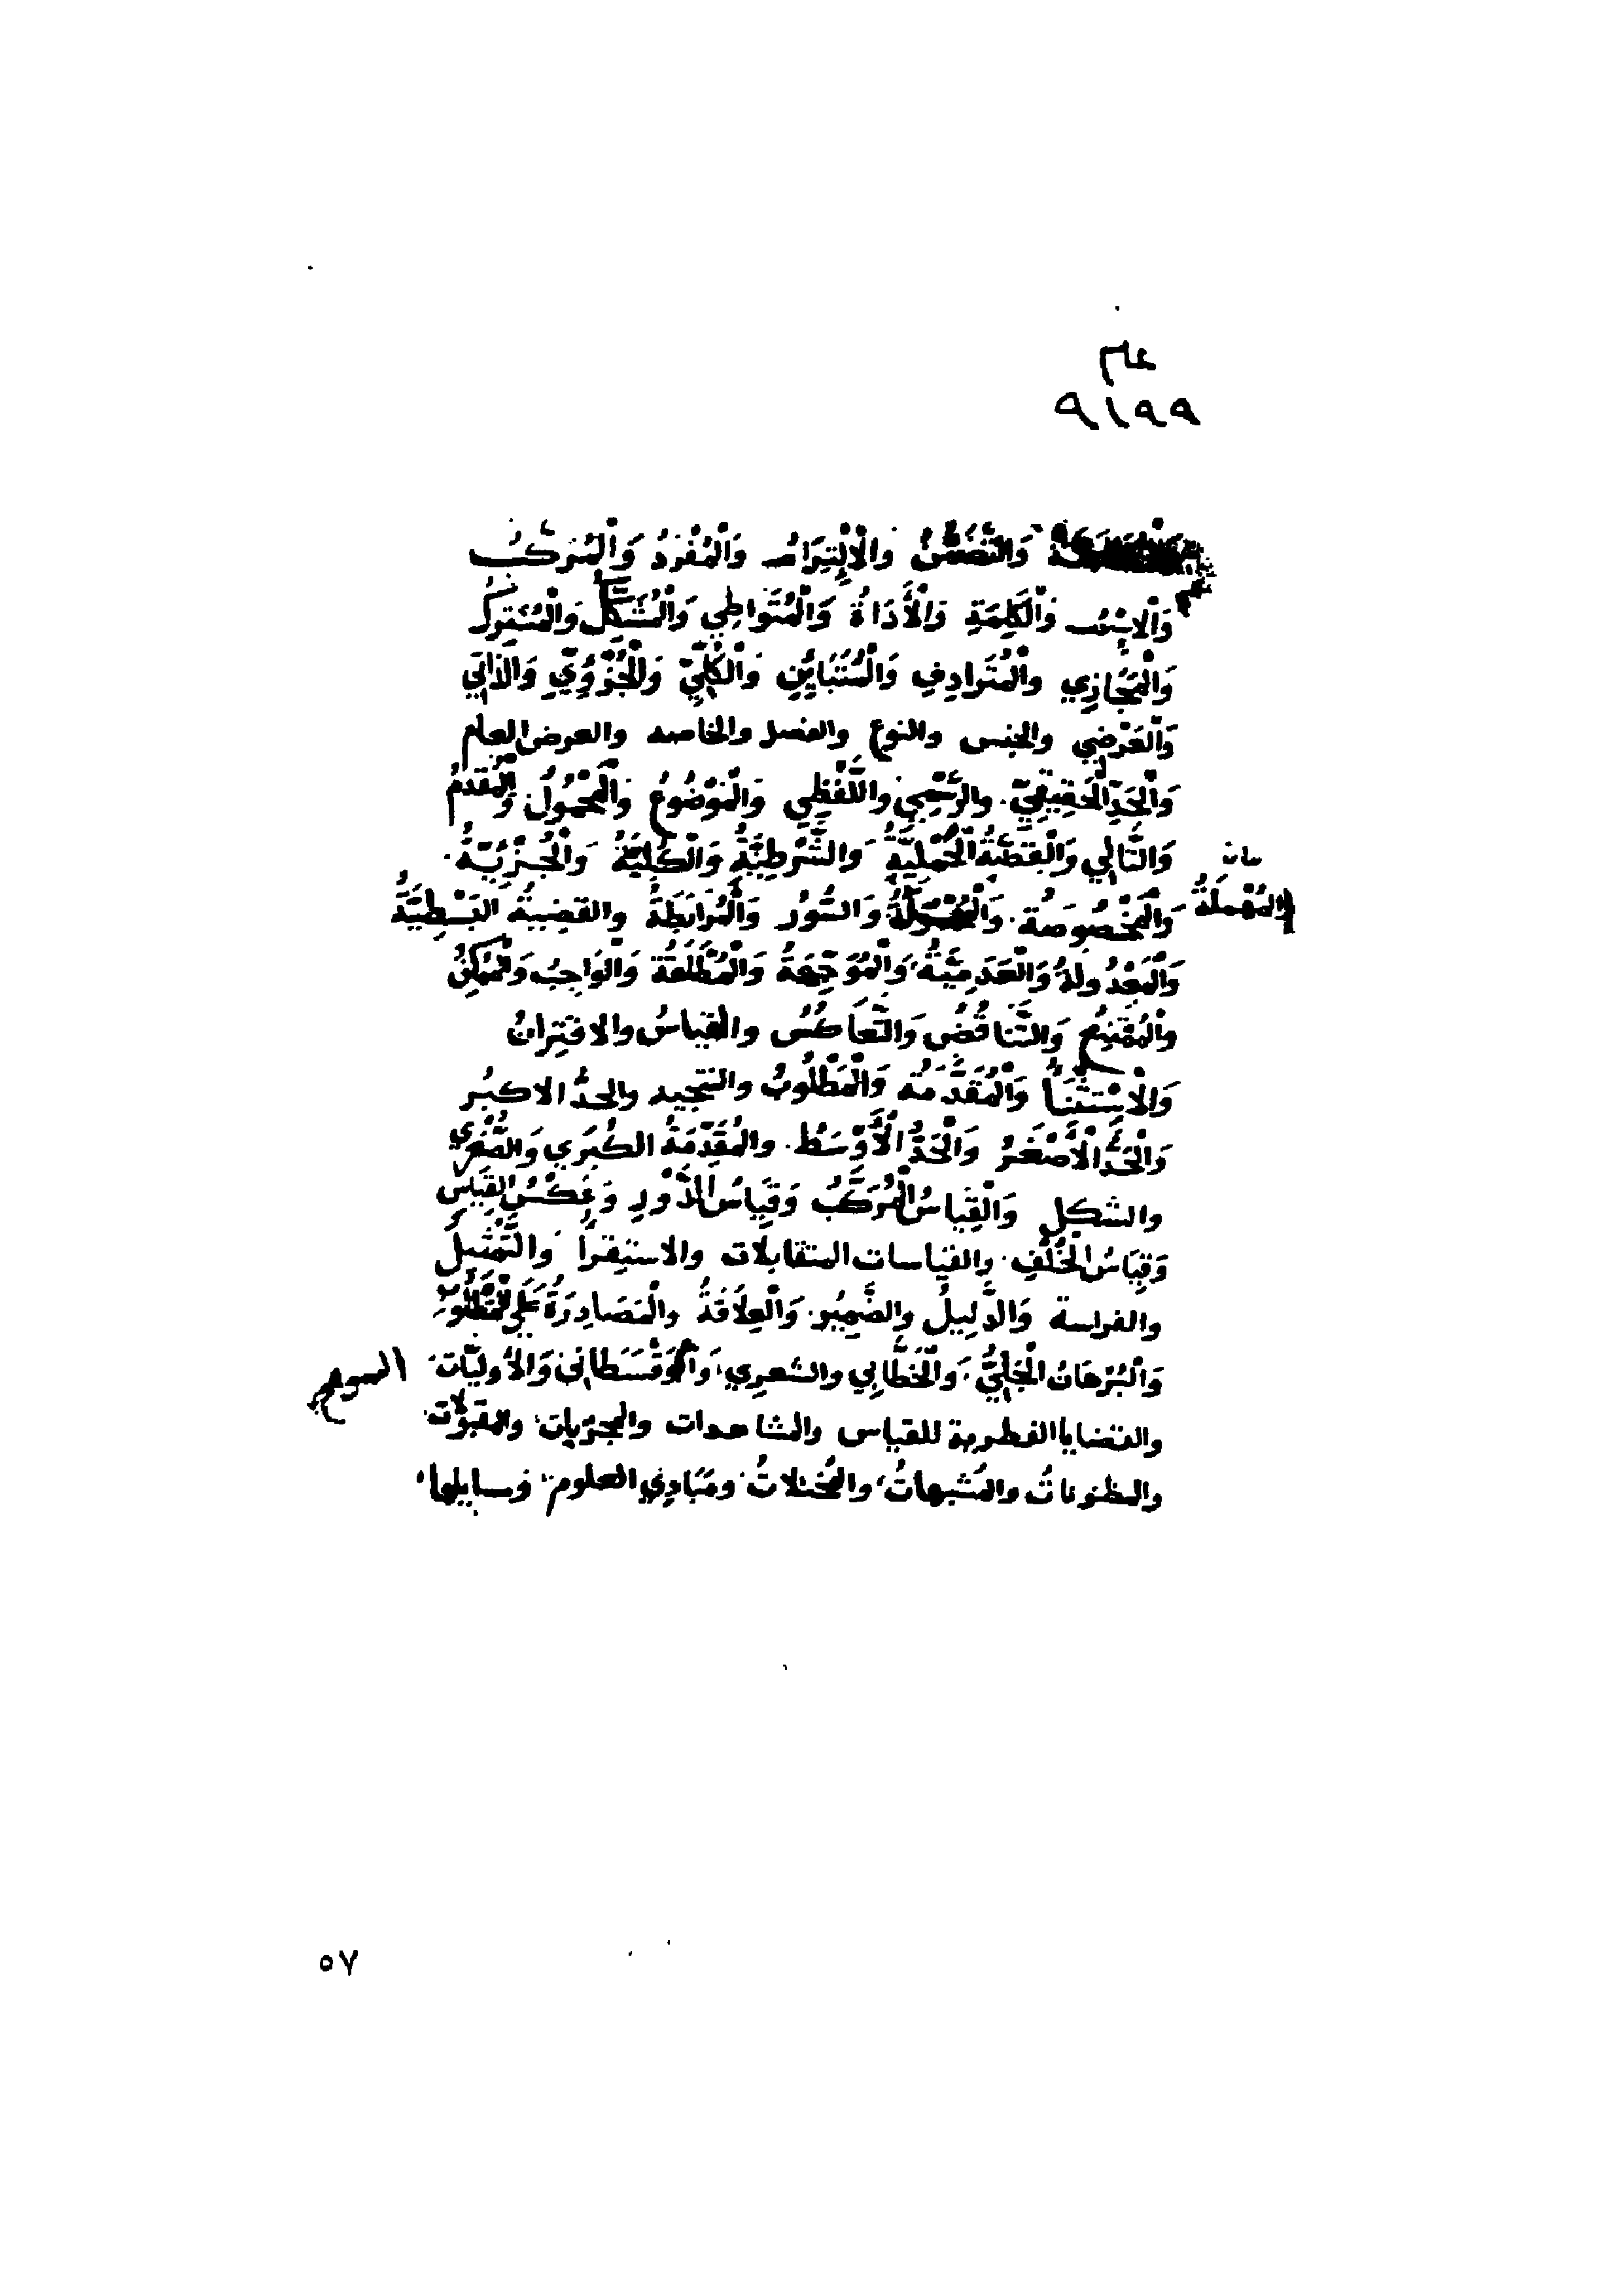 علم
٩١٩٩
وَالتَّضَمُّنُ والْاِلْتِزَامُ وَالْمُفْرَدُ وَالْمُرَكَّبُ
وَالْاِسْمُ وَالْكَلِمَةِ وَالْأَدَاةُ وَالْمُتَوَاطِي وَالْمُشَكَّلُ وَالْمُشْتَرَكُ
وَالْمَجَازِي والْمُتَرادِفِ وَالْمُتَبَايِنِ وَالْكُلِّيِّ وَالْجُزْوِيِّ وَالذَّاتِي
وَالْعَرَضِي والجنس والنوع والفصل والخاصه والعرض العام
وَالْحَدِّ الْحَقِيقِيِّ والرَّسْمِي واللَّفْظِي وَالْمَوْضُوعُ وَالْمَحْمُولُ وَالْمُقَدَّمُ
وَالتَّالِي وَالْقَضِيَّةُ الْحَمْلِيَّةُ وَالشَّرْطِيَّةُ وَالْكُلِّيَّةُ وَالْجُزْئِيَّةُ
بيان
وَالْمُهْمَلَةُ
وَالْمَخْصُوصَةُ وَالسُّوُر وَالْمُرَابَطَةُ والقَضِيةُ البَسْطِيَّةُ
وَالْمَعْدُولَةُ وَالْعَدَمِيَّةُ وَالْمُوَجَّهَةُ وَالْمُطْلَقَةُ وَالْوَاجِبُ وَالْمُمْكِنُ
والْمُمْتَنِعُ وَالتَّنَاقُضُ وَالتَّعَاكُسُ والْقِيَاسُ والاقتِرانُ
وَالْاِسْتِثْنَاً وَالْمُقَدَّمَةُ وَالْمَطْلُوبُ والنتجيه والحدُّ الاكبُر
وَالْحَدُّ الْأَصْغَرُ وَالْحَدُّ الْأَوْسَطُ والمُقَدِّمَةُ الكُبَري وَالصُّغْري
والشكل وَالْقِيَاسُ الْمُرَكَّبُ وَقِيَاسُ الدَّوْرِ وَعَكْسُ القِيَاسِ
وَقِيَاسُ الْخُلْفِ والقياسات المتقابلات والاستقراً والتَّمْثيلُ
والفراسة وَالدَّلِيلُ والضَّمِيُر وَالْعِلَاقَةُ والْمُصَادَرَةُ عَلَي الْمَطْلُوبِ
وَالْبُرْهَانُ الْجَدَلِيُّ وَالْخَطَابِي والشعرِي وَالسُّوفَسَطَانِي وَالأوليَّات
والقضايا الفطرية للقياس والمشاهدات والمجرّبات والمقبولات
والمظنونات والمُشبهاتُ والمخيلاتُ ومَبَادِي العلوم ومسايلها
٥٧